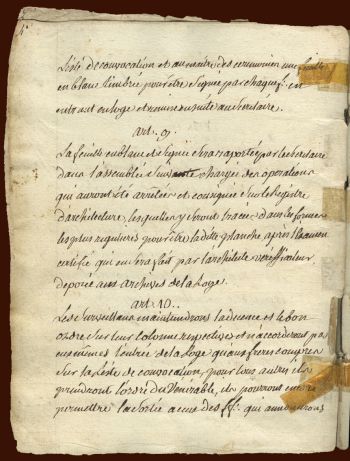 Liste de convocation et au maitre des ceremonies une feuille
en blanc timbrée pour être signée par chaque f: en
entrant en loge et remise ensuite au Secretaire.
art. 9.
La feuille en blanc et signée sera raportée par le Secretaire
dans l'assemblée suivante chargée des operations
qui auront été arretées et consignée sur le Registre
d'architecture, lesquelles y seront tracées dans les formes
les plus regulieres pour être la ditte planche, après l'examen
certifié qui en sera fait par l'architecte verifficateur
deposée aux archives de la Loge.
art. 10.
Les Surveillans maintiendront la decence et le bon
ordre sur leur colonne respective et n'accorderont pas
eux mêmes l'entrée de la Loge qu'aux freres compris
sur la Liste de convocation, pour tous autres ils
prendront l'ordre du Vénérable, ils pourront encore
permettre la sortie a ceux des ff. qui